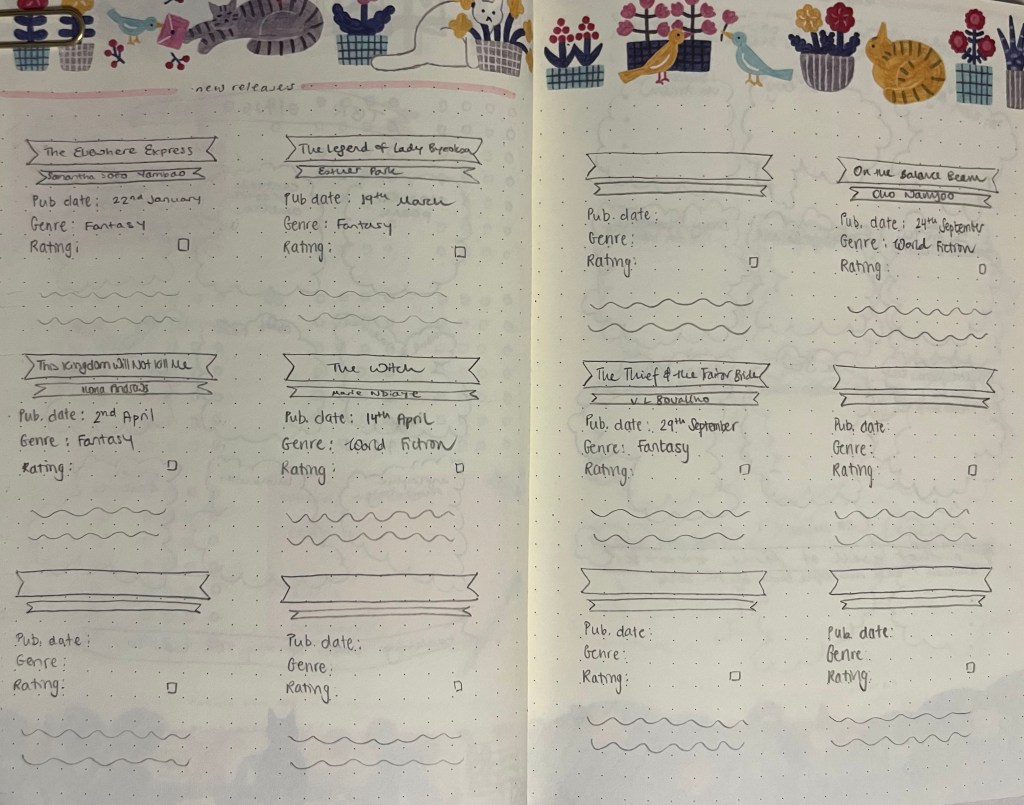 new releases
The Elsewhere Express
Samantha Sotto Yambao
Pub date: 22nd January
Genre: Fantasy
Rating:
The Legend of Lady Byeoksa
Esther Park
Pub date: 19th March
Genre: Fantasy
Rating:
This Kingdom Will Not Kill Me
Ilona Andrews
Pub. date: 2nd April
Genre: Fantasy
Rating:
The Witch
Marie NDiaye
Pub. date: 14th April
Genre: World Fiction
Rating:
Pub. date:
Genre:
Rating:
Pub. date:
Genre:
Rating:
Pub. date:
Genre:
Rating:
On the Balance Beam
Cho Namjoo
Pub. date: 24th September
Genre: World Fiction
Rating:
The Thief & the Faior Bride
V L Bovalino
Pub. date: 29th September
Genre: Fantasy
Rating:
Pub. date:
Genre:
Rating:
Pub. date:
Genre:
Rating:
Pub. date:
Genre:
Rating: